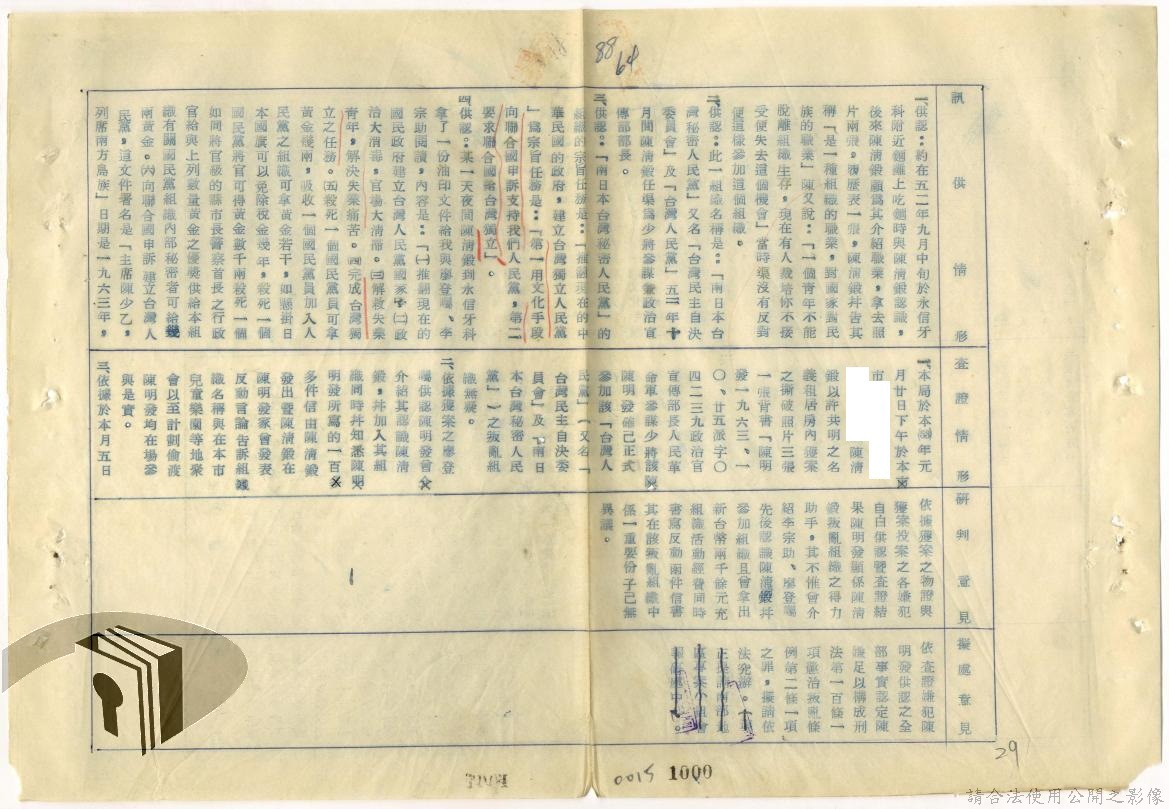 88
64
訊供情形
一、供認:約在五二年九月中旬於永信牙
科附近麵攤上吃麵時與陳清鍛認識,
後來陳清鍛願為其介紹職業,拿去照
片兩張,履歷表一張,陳清鍛幷告其
稱「是一種組織的職業,對國家對民
族的職業」陳又說:「一個青年不能
脫離組織生存,現在有人栽培你不接
受便失去這個機會」當時渠沒有反對
便這樣參加這個組織。
二、供認:此一組織名稱是:「南日本台
灣秘密人民黨」又名「台灣民主自決
委員會」及「台灣人民黨」五二年十
月間陳清鍛任渠為少將參謀兼政治官
傳部部長。
三、供認:「南日本台灣秘密人民黨」的
組織的宗旨任務是:「推翻現在的中
華民國的政府,建立台灣獨立人民黨
」為宗旨任務是:「第一用文化手段
向聯合國申訴支持我們人民黨,第二
要求聯合國給台灣獨立」。
四、供認:某一天夜間陳清鍛到永信牙科
拿了一份油印文件給我與廖登囑、李
宗助閱讀,內容是:「㈠推翻現在的
國民政府建立台灣人民黨國家。㈡政
治大消毒,官場大清滌。㈢解救失業
青年,解決失業痛苦。㈣完成台灣獨
立之任務。㈤殺死一個國民黨員可拿
黃金幾兩,吸收一個國民黨員加入人
民黨之組織可拿黃金若干,如懸掛日
本國旗可以免除稅金幾年,殺死一個
國民黨將官可得黃金數千兩殺死一個
如同將官級的縣市長警察首長之行政
官給與上列數量黃金之優獎供給本組
織有關國民黨組織內部秘密者可給幾
兩黃金。㈥向聯合國申訴建立台灣人
民黨,這文件署名是「主席陳少乙,
列席南方島族」日期是一九六三年,
查證情形
一、本局於本㈣年元
月廿日下午於本市
市
陳清
鍛以許共明之名
義租居房內獲案
之撕破照片三張
一張背書「陳明
發一九六三、一
〇、廿五派字〇
四二三九政治官
宣傳部長人民革
命軍參謀少將該陳
陳明發確已正式
參加該「台灣人
民黨」(又名「
台灣民主自決委
員會」及「南日
本台灣秘密人民
黨」)之叛亂組
織無疑。
二、依據獲案之廖登
囑供認陳明發曾介
介紹其認識陳清
鍛,幷加入其組
識同時幷知悉陳明
明發所寫的一百
多件信由陳清鍛
發出暨陳清鍛在
陳明發家曾發表
反動言論告訴組織
織名稱與在本市
兒童樂園等地聚
會以至計劃偷渡
陳明發均在場參
與是實。
三、依據於本月五日
研判意見
依據獲案之物證與
獲案投案之各嫌犯
自白供認暨查證結
果陳明發顯係陳清
鍛叛亂組織之得力
助手,其不惟曾介
紹李宗助、廖登囑
先後認識陳清鍛幷
參加組織且曾拿出
新台幣兩千餘元充
組織活動經費同時
書寫反動函件信書
其在該叛亂組織中
係一重要份子已無
異議。
擬處意見
依查證嫌犯陳
明發供認之全
部事實認定陳
嫌足以構成刑
法第一百條一
項懲治叛亂條
例第二條一項
之罪,擬請依
法究辦。
29
0015 1000
請合法使用公開之影像